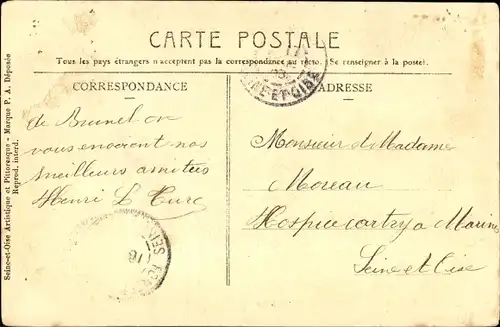 CARTE POSTALE
Tous les pays étrangers n'acceptent pas la correspondance au recto. (Se renseigner à la poste).
CORRESPONDANCE
ADRESSE
de Brunel on
vous envoient nos
meilleurs amitiés
Henri L Turc
Monsieur de Madame
Moreau
Hospice cartry a Marines
Seine et Oise
SEINE-ET-OISE
SEINE
Seine-et-Oise Artistique et Pittoresque - Marque P. A. Déposée
Reprod. interd.